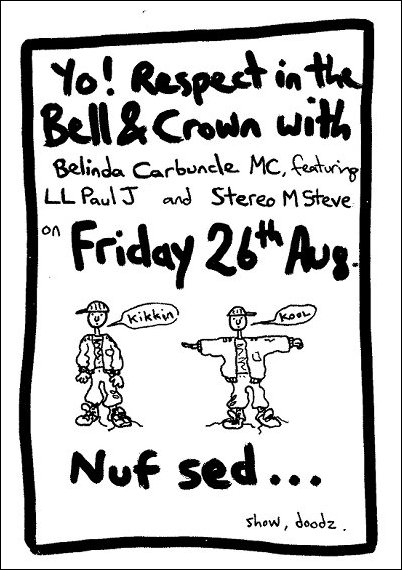 Yo! Respect in the
Bell & Crown with
Belinda Carbuncle MC, featuring
LL Paul J and Stereo M Steve
on Friday 26th Aug.
Kikkin
Kool
Nuf sed...
show, doodz.